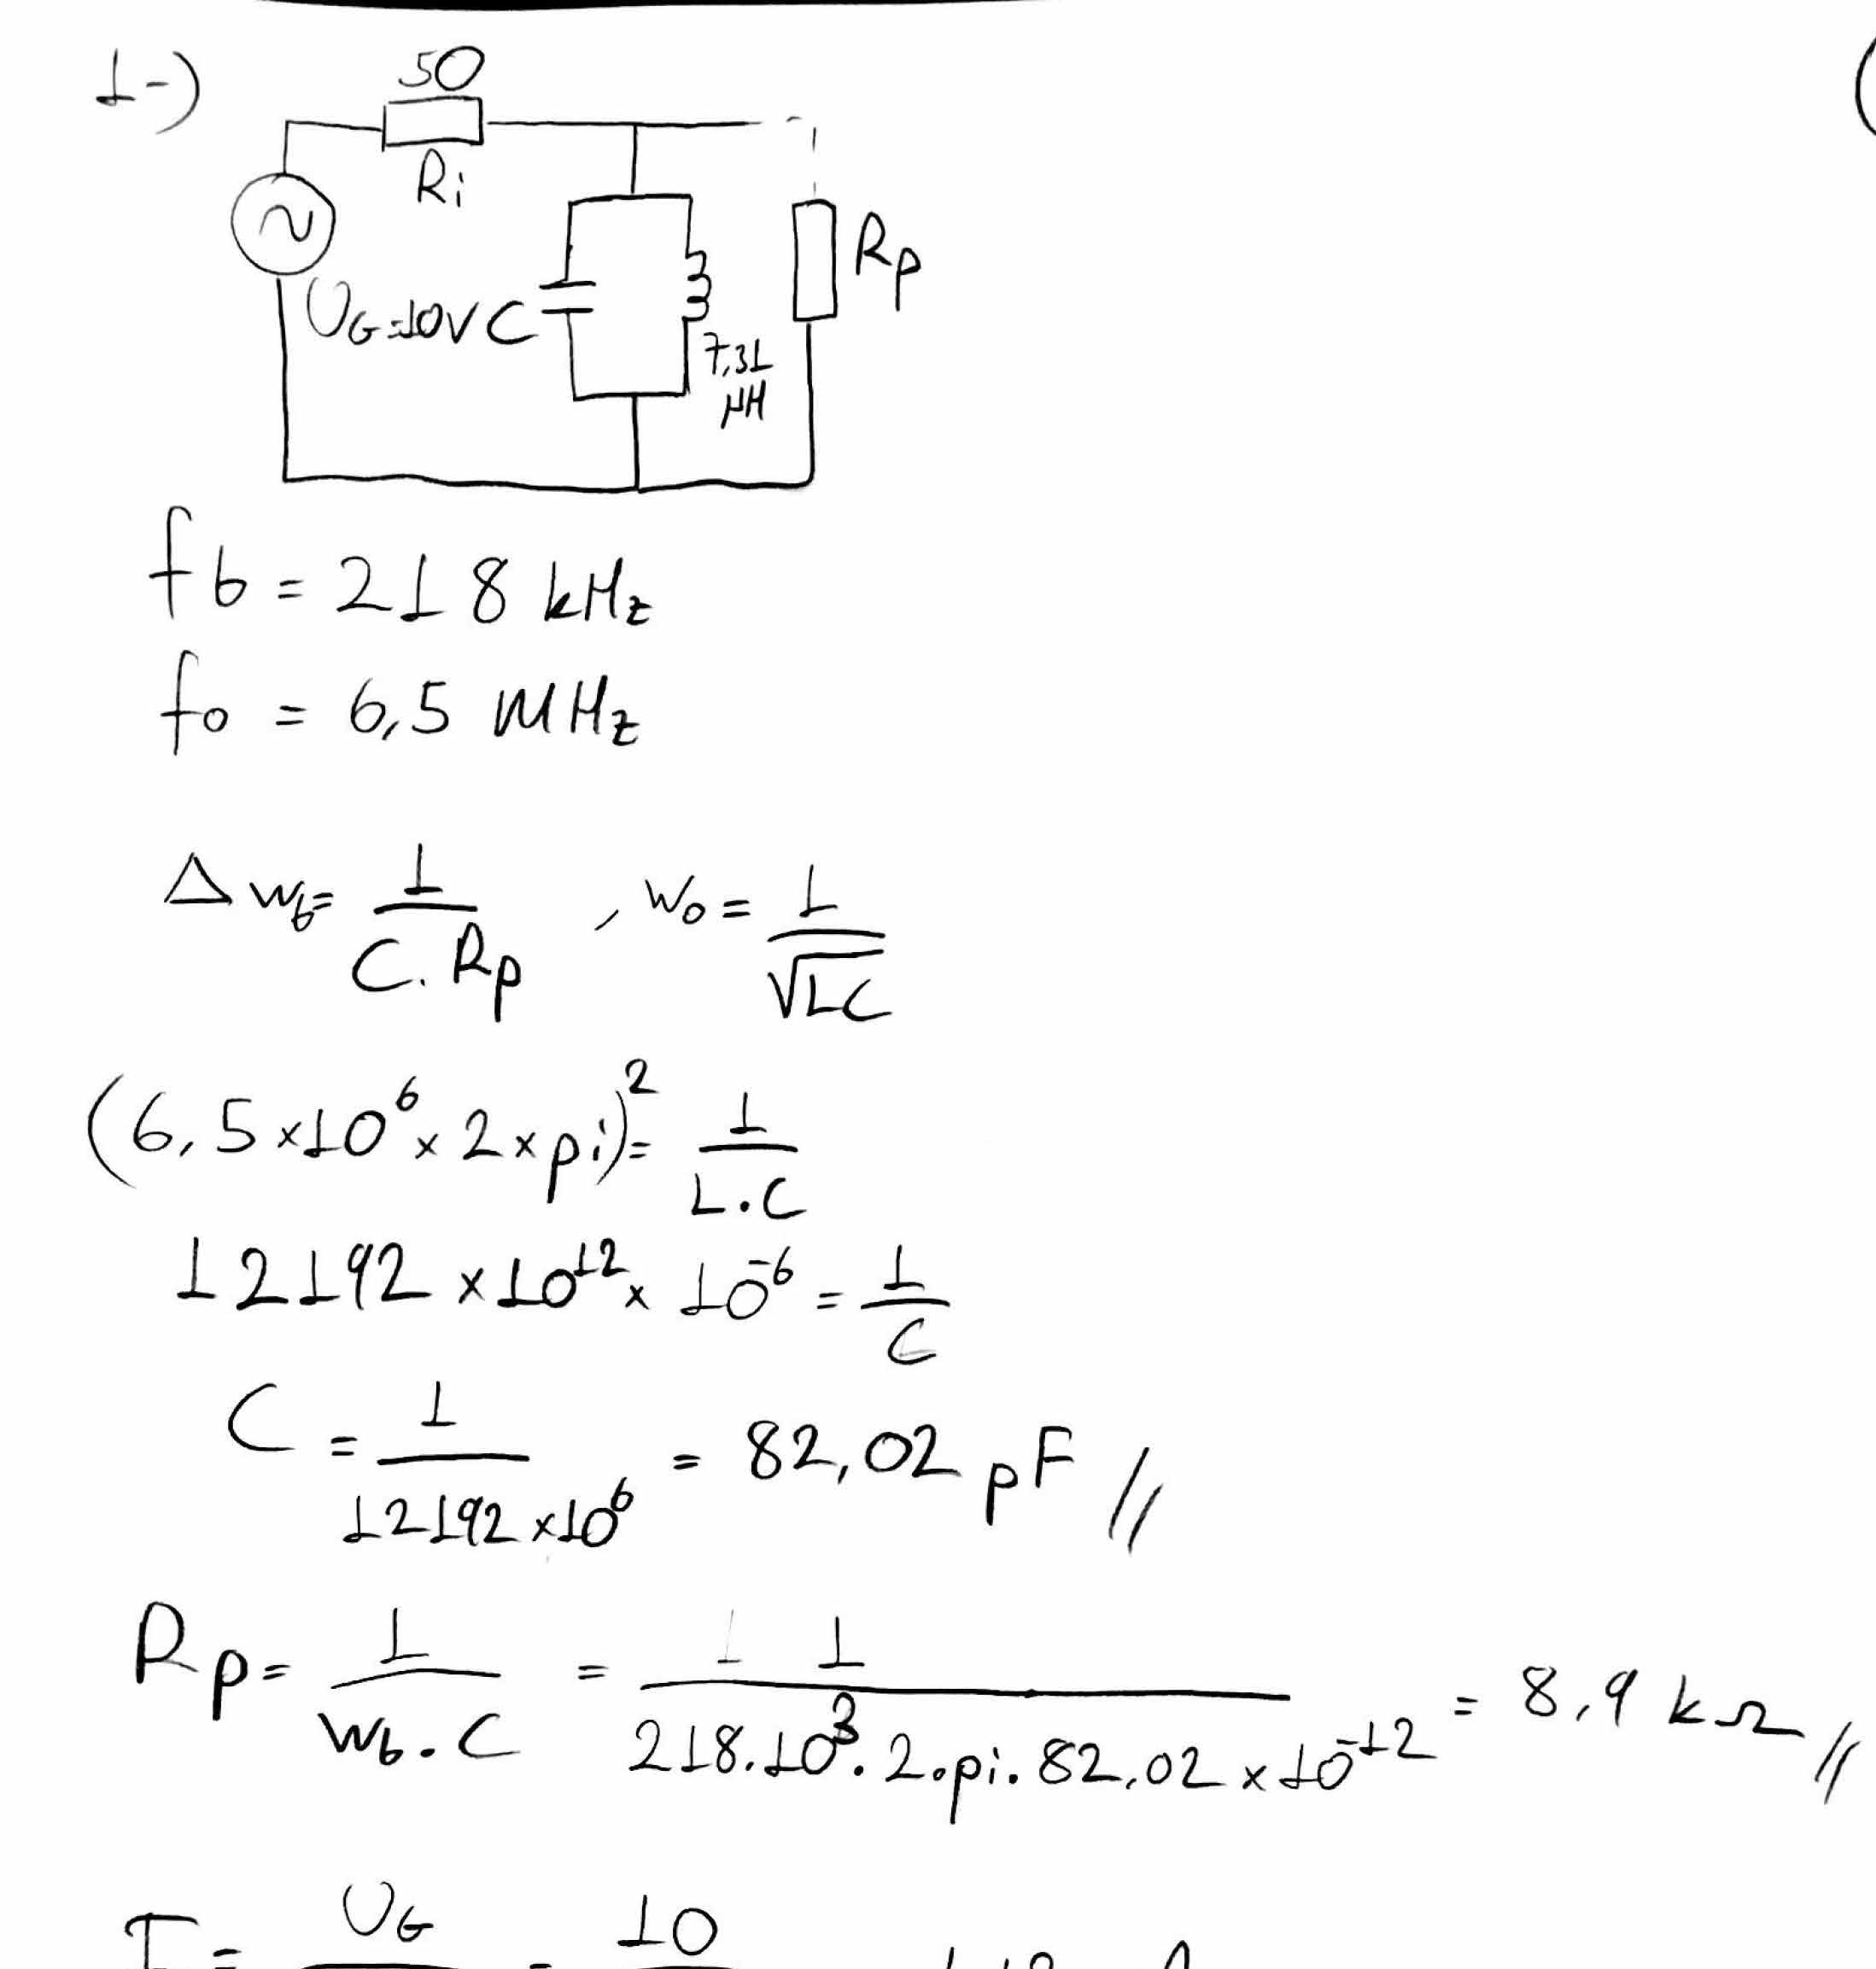 1-)
50
Ri
UG=10V
C
7,31
µH
Rp
fb = 218 kHz
fo = 6,5 MHz
Δwb= 1/C.Rp , wo = 1/√LC
(6,5x10⁶x2xpi)²= 1/L.C
12192 x10¹²x 10⁻⁶ = 1/C
C = 1/12192x10⁶ = 82,02 pF //
Rp= 1/wb.C = 1/218.10³.2.pi.82,02x10⁻¹² = 8,9 kΩ //
I = UG = 10